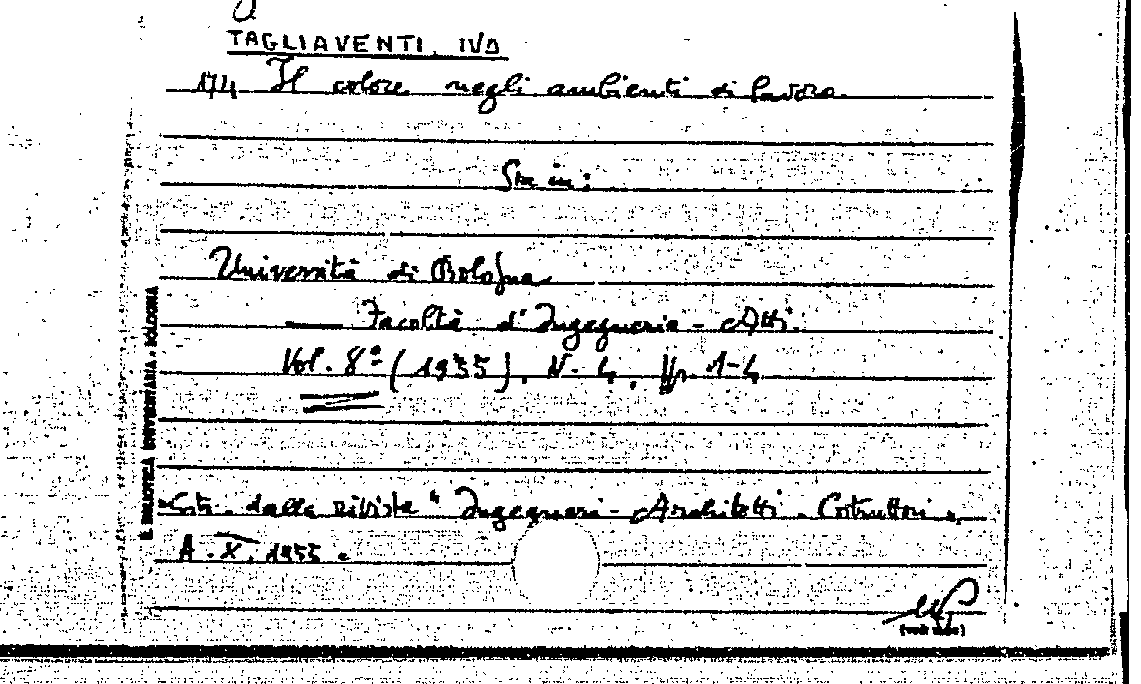 TAGLIAVENTI IVO
174 Il colore negli ambienti di lavoro.
Sta in:
Università di Bologna
— Facoltà d'Ingegneria - Atti.
Vol. 8º (1955), N. 4, pp. 1-4
Estr. dalla rivista "Ingegneri - Architetti - Costruttori",
A. X. 1955.
(vedi retro)
R. BIBLIOTECA UNIVERSITARIA - BOLOGNA